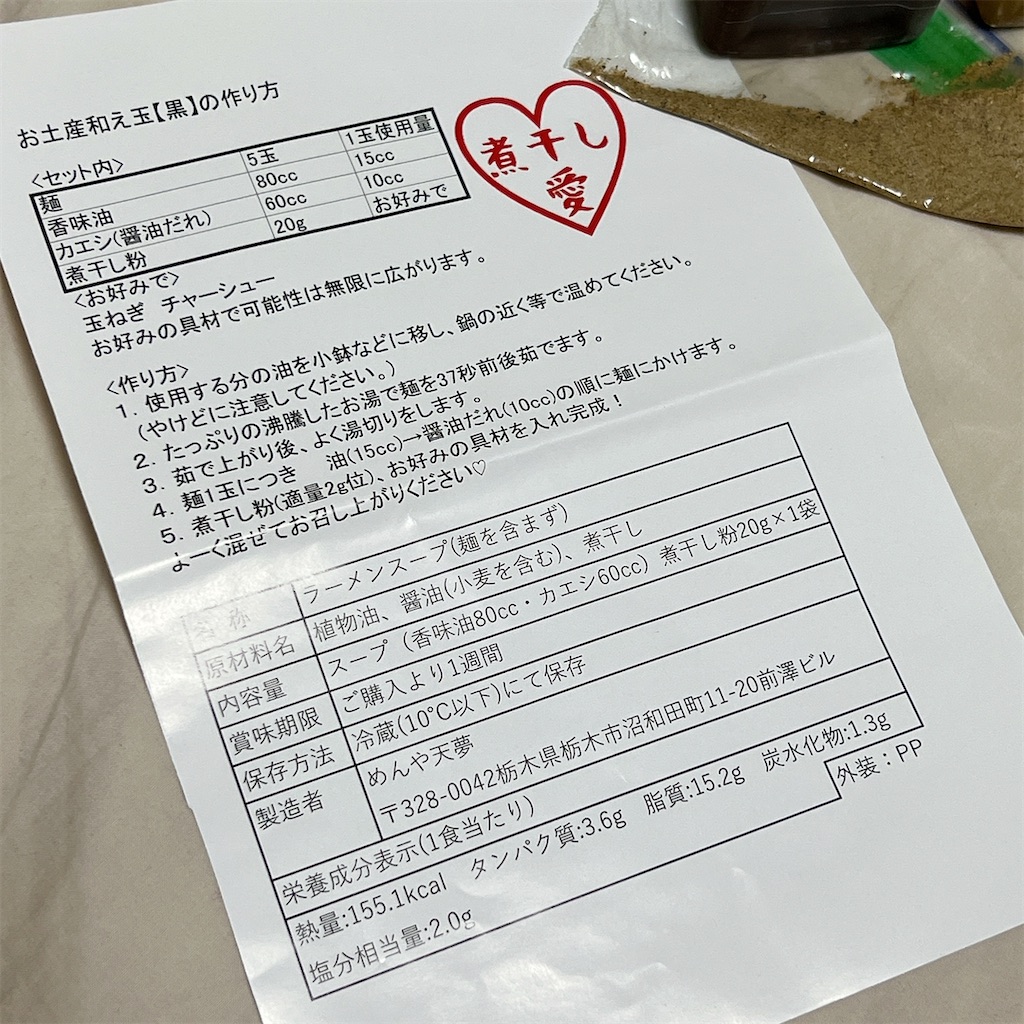 お土産和え玉【黒】の作り方
<セット内>
麺 5玉 1玉使用量
香味油 80cc 15cc
カエシ(醤油だれ) 60cc 10cc
煮干し粉 20g お好みで
煮干し
愛
<お好みで>
玉ねぎ チャーシュー
お好みの具材で可能性は無限に広がります。
<作り方>
1. 使用する分の油を小鉢などに移し、鍋の近く等で温めてください。
(やけどに注意してください。)
2. たっぷりの沸騰したお湯で麺を37秒前後茹でます。
3. 茹で上がり後、よく湯切りをします。
4. 麺1玉につき 油(15cc)→醤油だれ(10cc)の順に麺にかけます。
5. 煮干し粉(適量2g位)、お好みの具材を入れ完成！
よーく混ぜてお召し上がりください♡
名 称 ラーメンスープ(麺を含まず)
原材料名 植物油、醤油(小麦を含む)、煮干し
内容量 スープ（香味油80cc・カエシ60cc）煮干し粉20g×1袋
賞味期限 ご購入より1週間
保存方法 冷蔵(10°C以下)にて保存
製造者 めんや天夢
〒328-0042栃木県栃木市沼和田町11-20前澤ビル
栄養成分表示(1食当たり)
熱量:155.1kcal タンパク質:3.6g 脂質:15.2g 炭水化物:1.3g
塩分相当量:2.0g
外装：PP